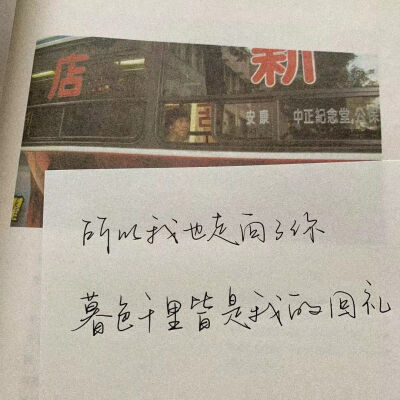 店 新
安康 中正纪念堂.公
所以我也走向了你
暮色千里皆是我的回礼